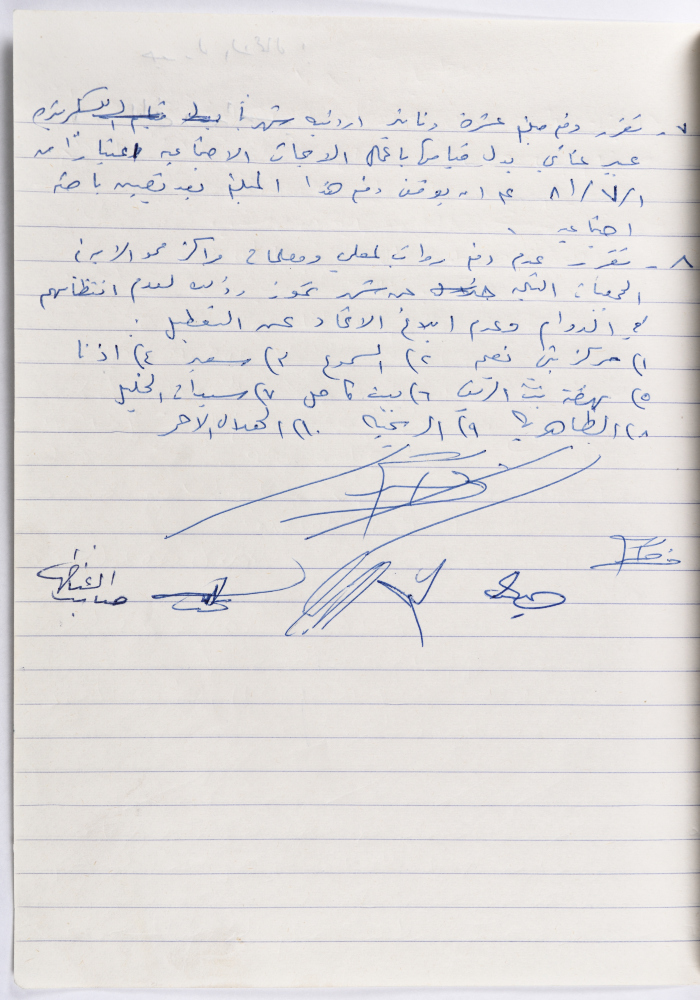 ٧- تقرر دفع مبلغ عشرة دنانير اردنيه شهريا بدل السكرتيره
عبير عناني بدل قيامها باعمال الابحاث الاجتماعيه اعتبارا من
٨١/٧/١ على ان يوقف دفع هذا المبلغ بعد تعيين باحثه
اجتماعيه .
٨- تقرر عدم دفع رواتب لمعلمي ومعلمات مراكز محو الاميه في
الجمعيات التاليه عن شهر تموز وذلك لعدم انتظامهم
في الدوام وعدم ابلاغ الاتحاد عن التعطيل :
١) مركز بني نعيم ٢) السموع ٣) سعير ٤) اذنا
٥) نهضة بنت الريف ٦) بيت كاحل ٧) سيدات الخليل
٨) الظاهريه ٩) الريحيه ١٠) الهلال الاحمر